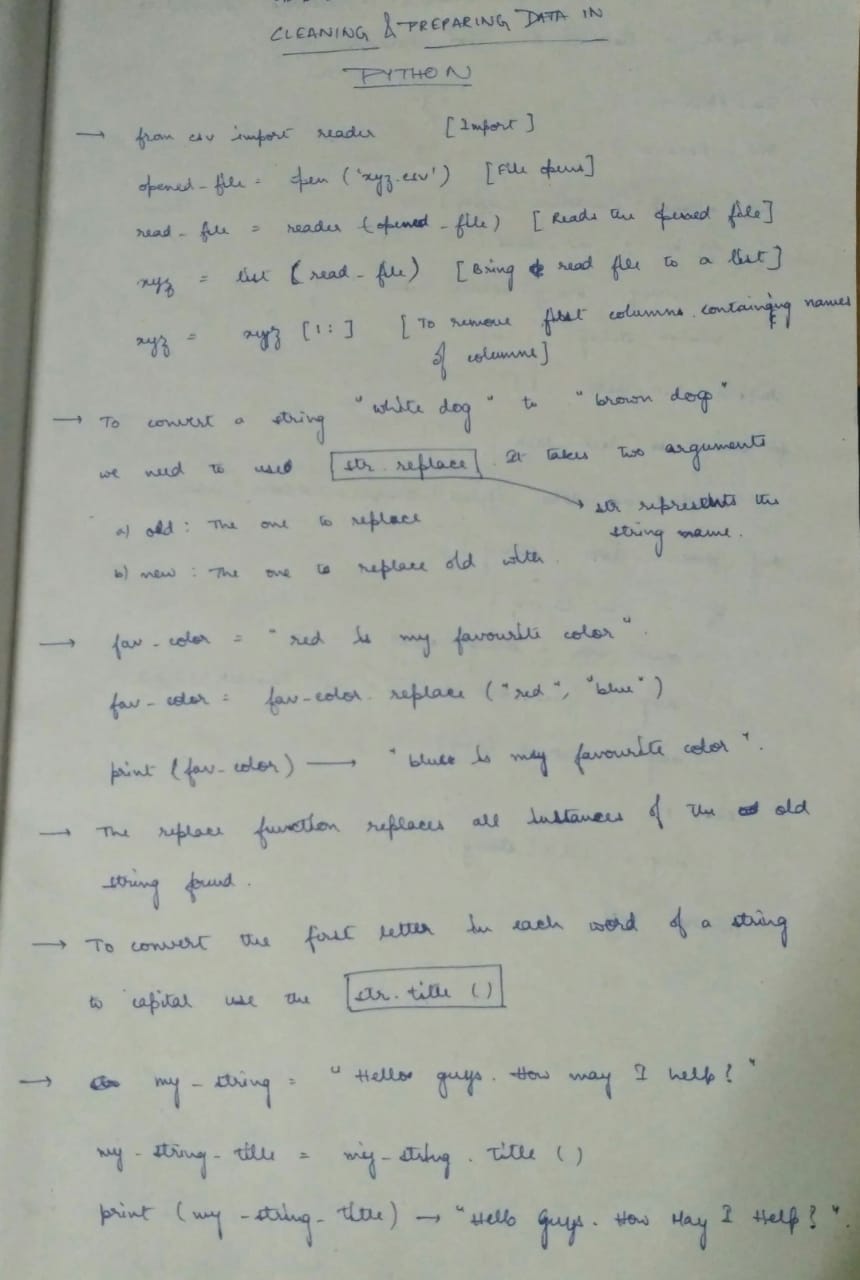 CLEANING & PREPARING DATA IN
PYTHON
→ from csv import reader [Import]
opened_file = open ('xyz.csv') [File opens]
read_file = reader (opened_file) [Reads the opened file]
xyz = list (read_file) [Bring read file to a list]
xyz = xyz [1:] [To remove first columns containing names
of columns]
→ To convert a string "white dog" to "brown dog"
we need to used str.replace. It takes two arguments
→ str represents the
string name.
a) old : The one to replace
b) new : The one to replace old with
→ fav_color = "red is my favourite color".
fav_color = fav_color.replace ("red", "blue")
print (fav_color) → "blue is my favourite color".
→ The replace function replaces all instances of the old
string found.
→ To convert the first letter in each word of a string
to capital use the str.title ()
→ my_string = "Hello guys. How may I help?"
my_string_title = my_string.title ()
print (my_string_title) → "Hello Guys. How May I Help?".